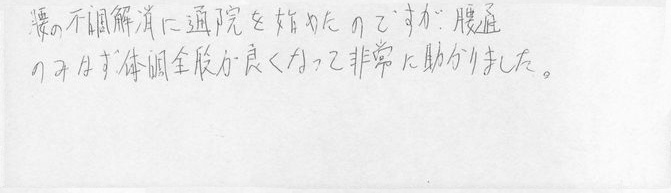 腰の不調解消に通院を始めたのですが、腰通
のみならず体調全般が良くなって非常に助かりました。